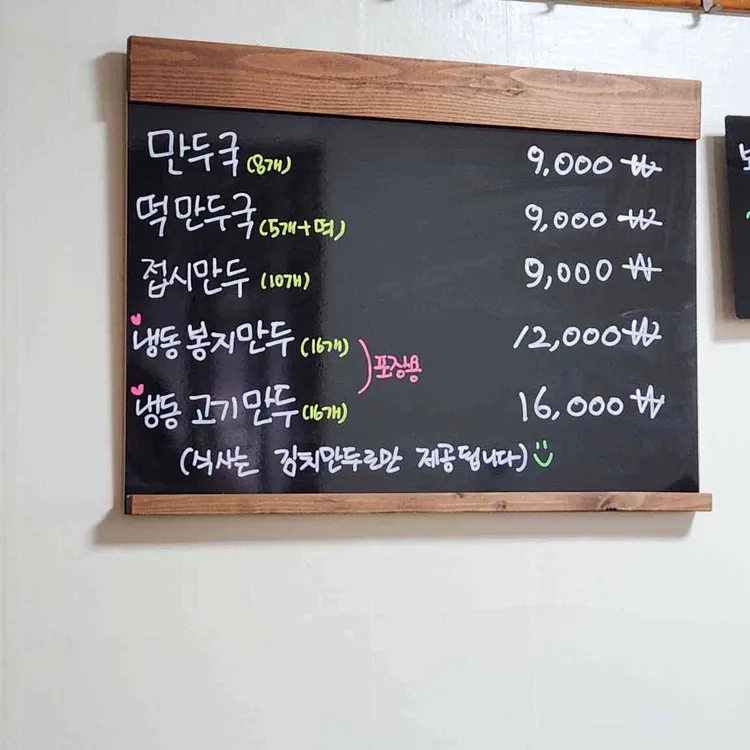 만두국 (8개) 9,000 ₩
떡만두국 (5개+떡) 9,000 ₩
접시만두 (10개) 9,000 ₩
냉동 봉지만두 (16개) 12,000 ₩
포장용
냉동 고기만두 (16개) 16,000 ₩
(식사는 김치만두로만 제공됩니다)